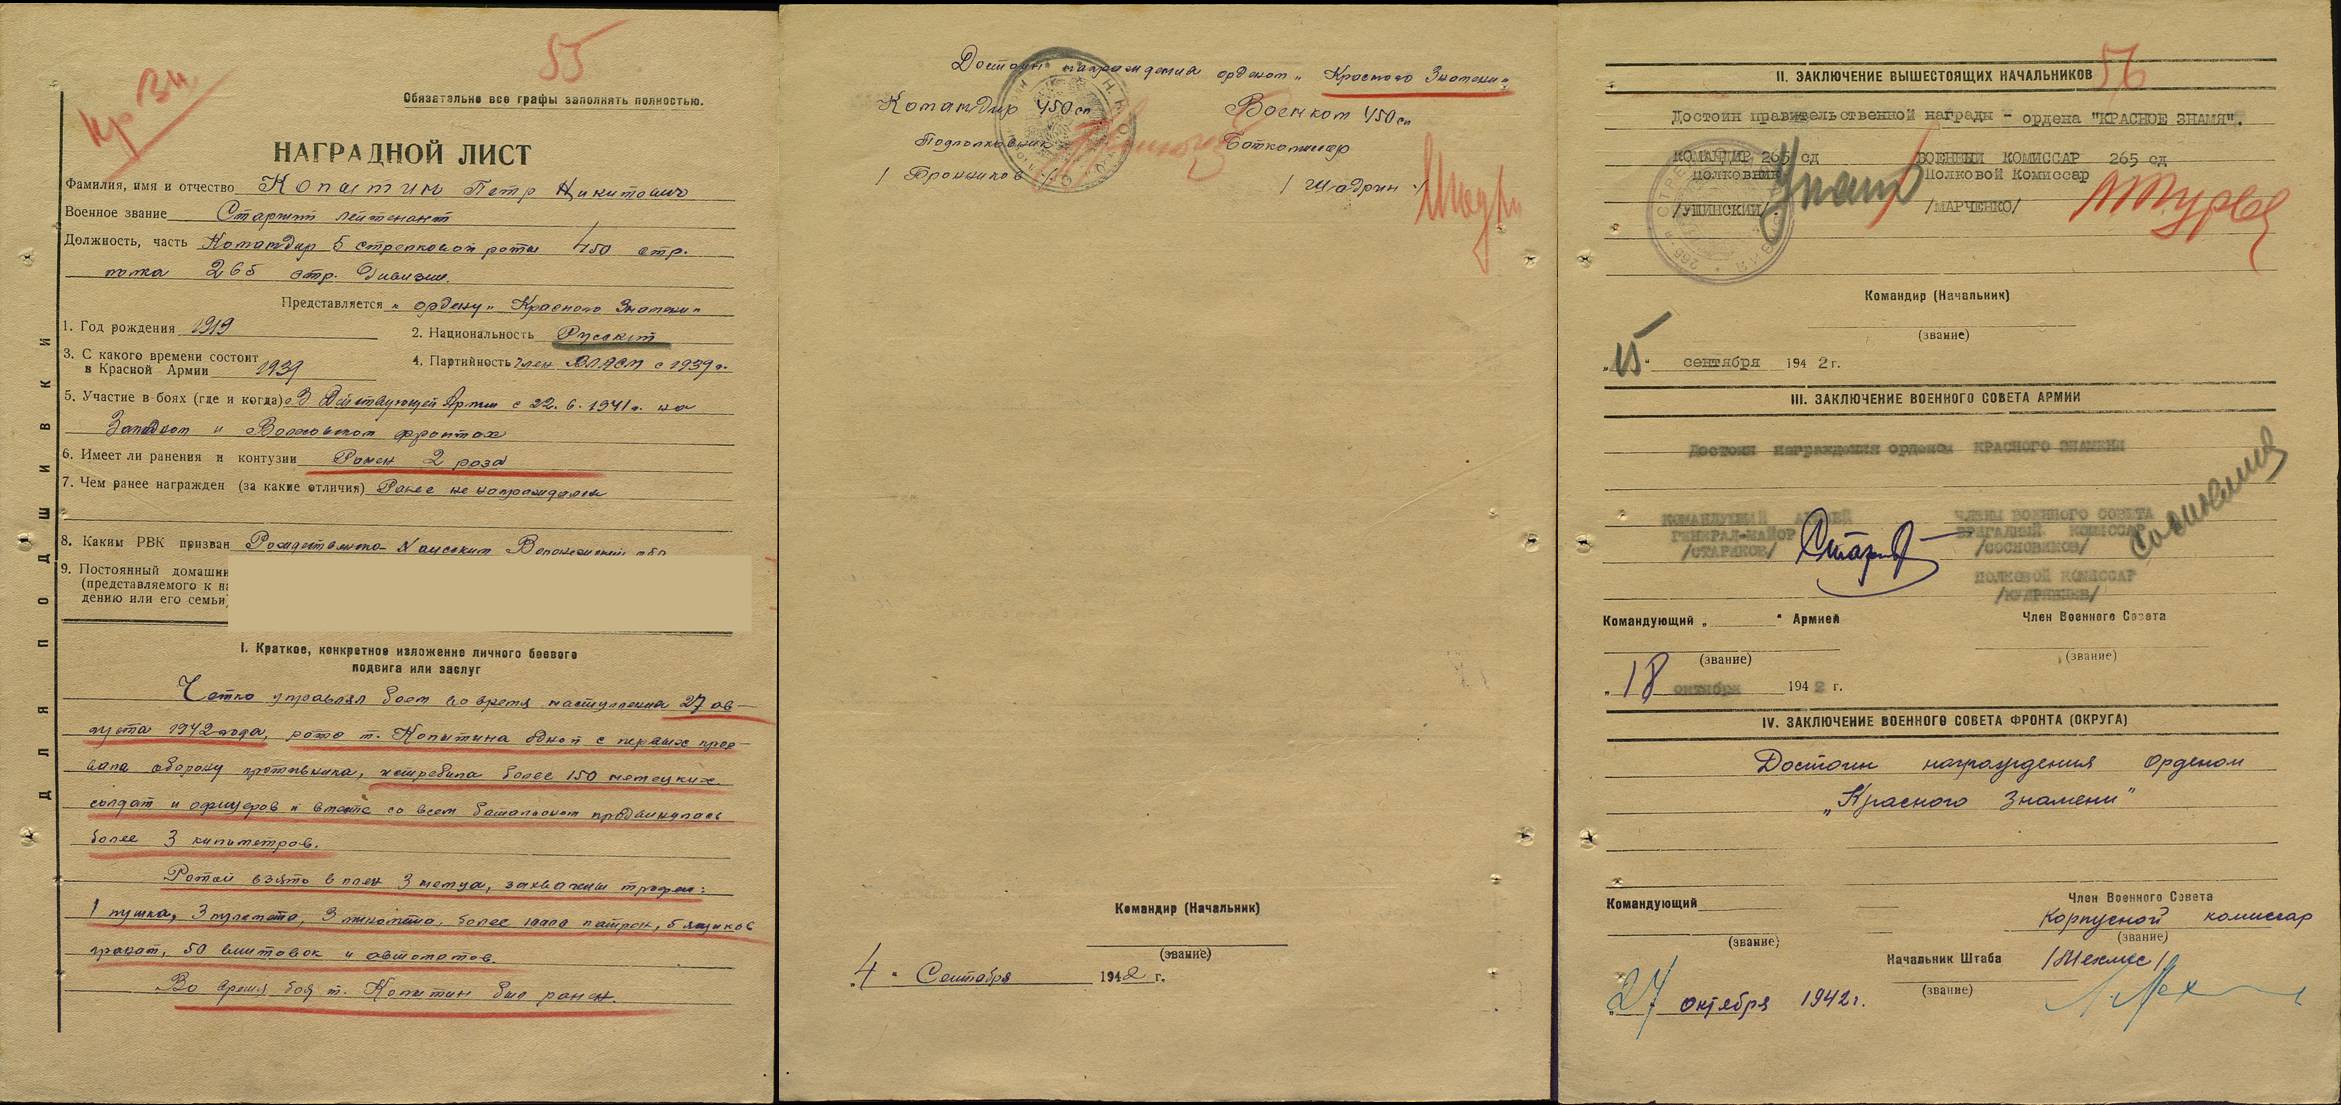 Кр Зн
55
Обязательно все графы заполнять полностью.
НАГРАДНОЙ ЛИСТ
Фамилия, имя и отчество Копытин Петр Никитович
Военное звание Старший лейтенант
Должность, часть Командир 5 стрелковой роты 450 стр.
полка 265 стр. дивизии.
Представляется к ордену "Красного Знамени"
1. Год рождения 1919
2. Национальность Русский
3. С какого времени состоит
в Красной Армии 1939
4. Партийность Член ВЛКСМ с 1939 г.
5. Участие в боях (где и когда) В Действующей Армии с 22.6.1941 г. на
Западном и Волховском фронтах
6. Имеет ли ранения и контузии Ранен 2 раза
7. Чем ранее награжден (за какие отличия) Ранее не награждался
8. Каким РВК призван Рождественско-Хавским Воронежской обл
9. Постоянный домашни
(представляемого к на
дению или его семьи)
ДЛЯ ПОДШИВКИ
I. Краткое, конкретное изложение личного боевого
подвига или заслуг
Четко управлял боем во время наступления 27 ав-
густа 1942 года, рота т. Копытина одной с первых прор-
вала оборону противника, истребила более 150 немецких
солдат и офицеров и вместе со всем батальоном продвинулась
более 3 километров.
Ротой взято в плен 3 немца, захвачены трофеи:
1 пушка, 3 пулемета, 3 миномета, более патрон, 5 ящиков
гранат, 50 винтовок и автоматов.
Во время боя т. Копытин был ранен.
Достоин награждения орденом "Красного Знамени"
Командир 450 сп
Военком 450 сп
Подполковник
Баткомиссар
/ Бронников /
/ Шадрин /
Командир (Начальник)
(звание)
"4" Сентября 1942 г.
56
II. ЗАКЛЮЧЕНИЕ ВЫШЕСТОЯЩИХ НАЧАЛЬНИКОВ
Достоин правительственной награды - ордена "КРАСНОЕ ЗНАМЯ".
КОМАНДИР 265 сд
ВОЕННЫЙ КОМИССАР 265 сд
полковник
Полковой Комиссар
/УШИНСКИЙ/
/МАРЧЕНКО/
Командир (Начальник)
(звание)
"15" сентября 1942 г.
III. ЗАКЛЮЧЕНИЕ ВОЕННОГО СОВЕТА АРМИИ
Достоин награждения орденом КРАСНОГО ЗНАМЕНИ
КОМАНДУЮЩИЙ АРМИЕЙ
ЧЛЕНЫ ВОЕННОГО СОВЕТА
ГЕНЕРАЛ-МАЙОР
БРИГАДНЫЙ КОМИССАР
/СТАРИКОВ/
/СОСНОВИКОВ/
ПОЛКОВОЙ КОМИССАР
/КУДРЯВЦЕВ/
Командующий " " Армией
Член Военного Совета
(звание)
(звание)
"18 октября 1942 г.
IV. ЗАКЛЮЧЕНИЕ ВОЕННОГО СОВЕТА ФРОНТА (ОКРУГА)
Достоин награждения орденом
"Красного Знамени"
Командующий
Член Военного Совета
Корпусной комиссар
(звание)
(звание)
Начальник Штаба
/Мехлис/
(звание)
"27 октября 1942 г.